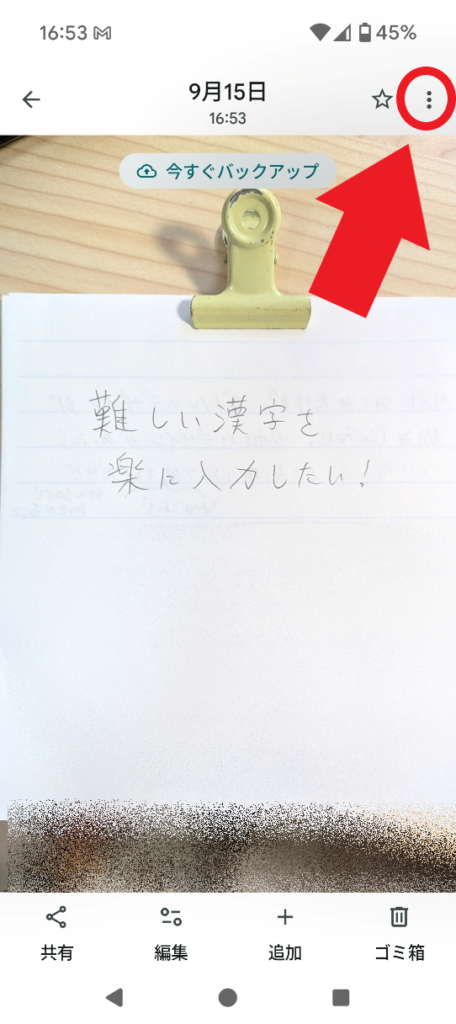 16:53 45%
9月15日
16:53
今すぐバックアップ
難しい漢字を
楽に入力したい!
共有 編集 追加 ゴミ箱